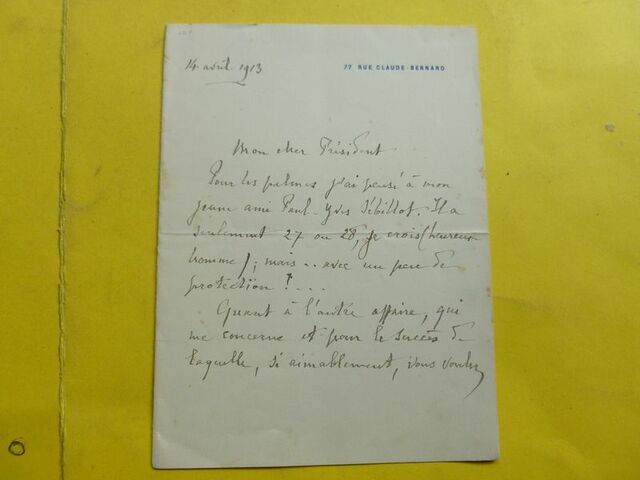 14 avril 1913
77 RUE CLAUDE BERNARD
Mon cher Président
Pour les palmes j'ai pensé à mon
jeune ami Paul-Yves Sébillot. Il a
seulement 27 ou 28, je crois (heureux
homme); mais .. avec un peu de
protection ! ...
Quant à l'autre affaire, qui
me concerne et pour le succès de
laquelle, si aimablement, vous voulez